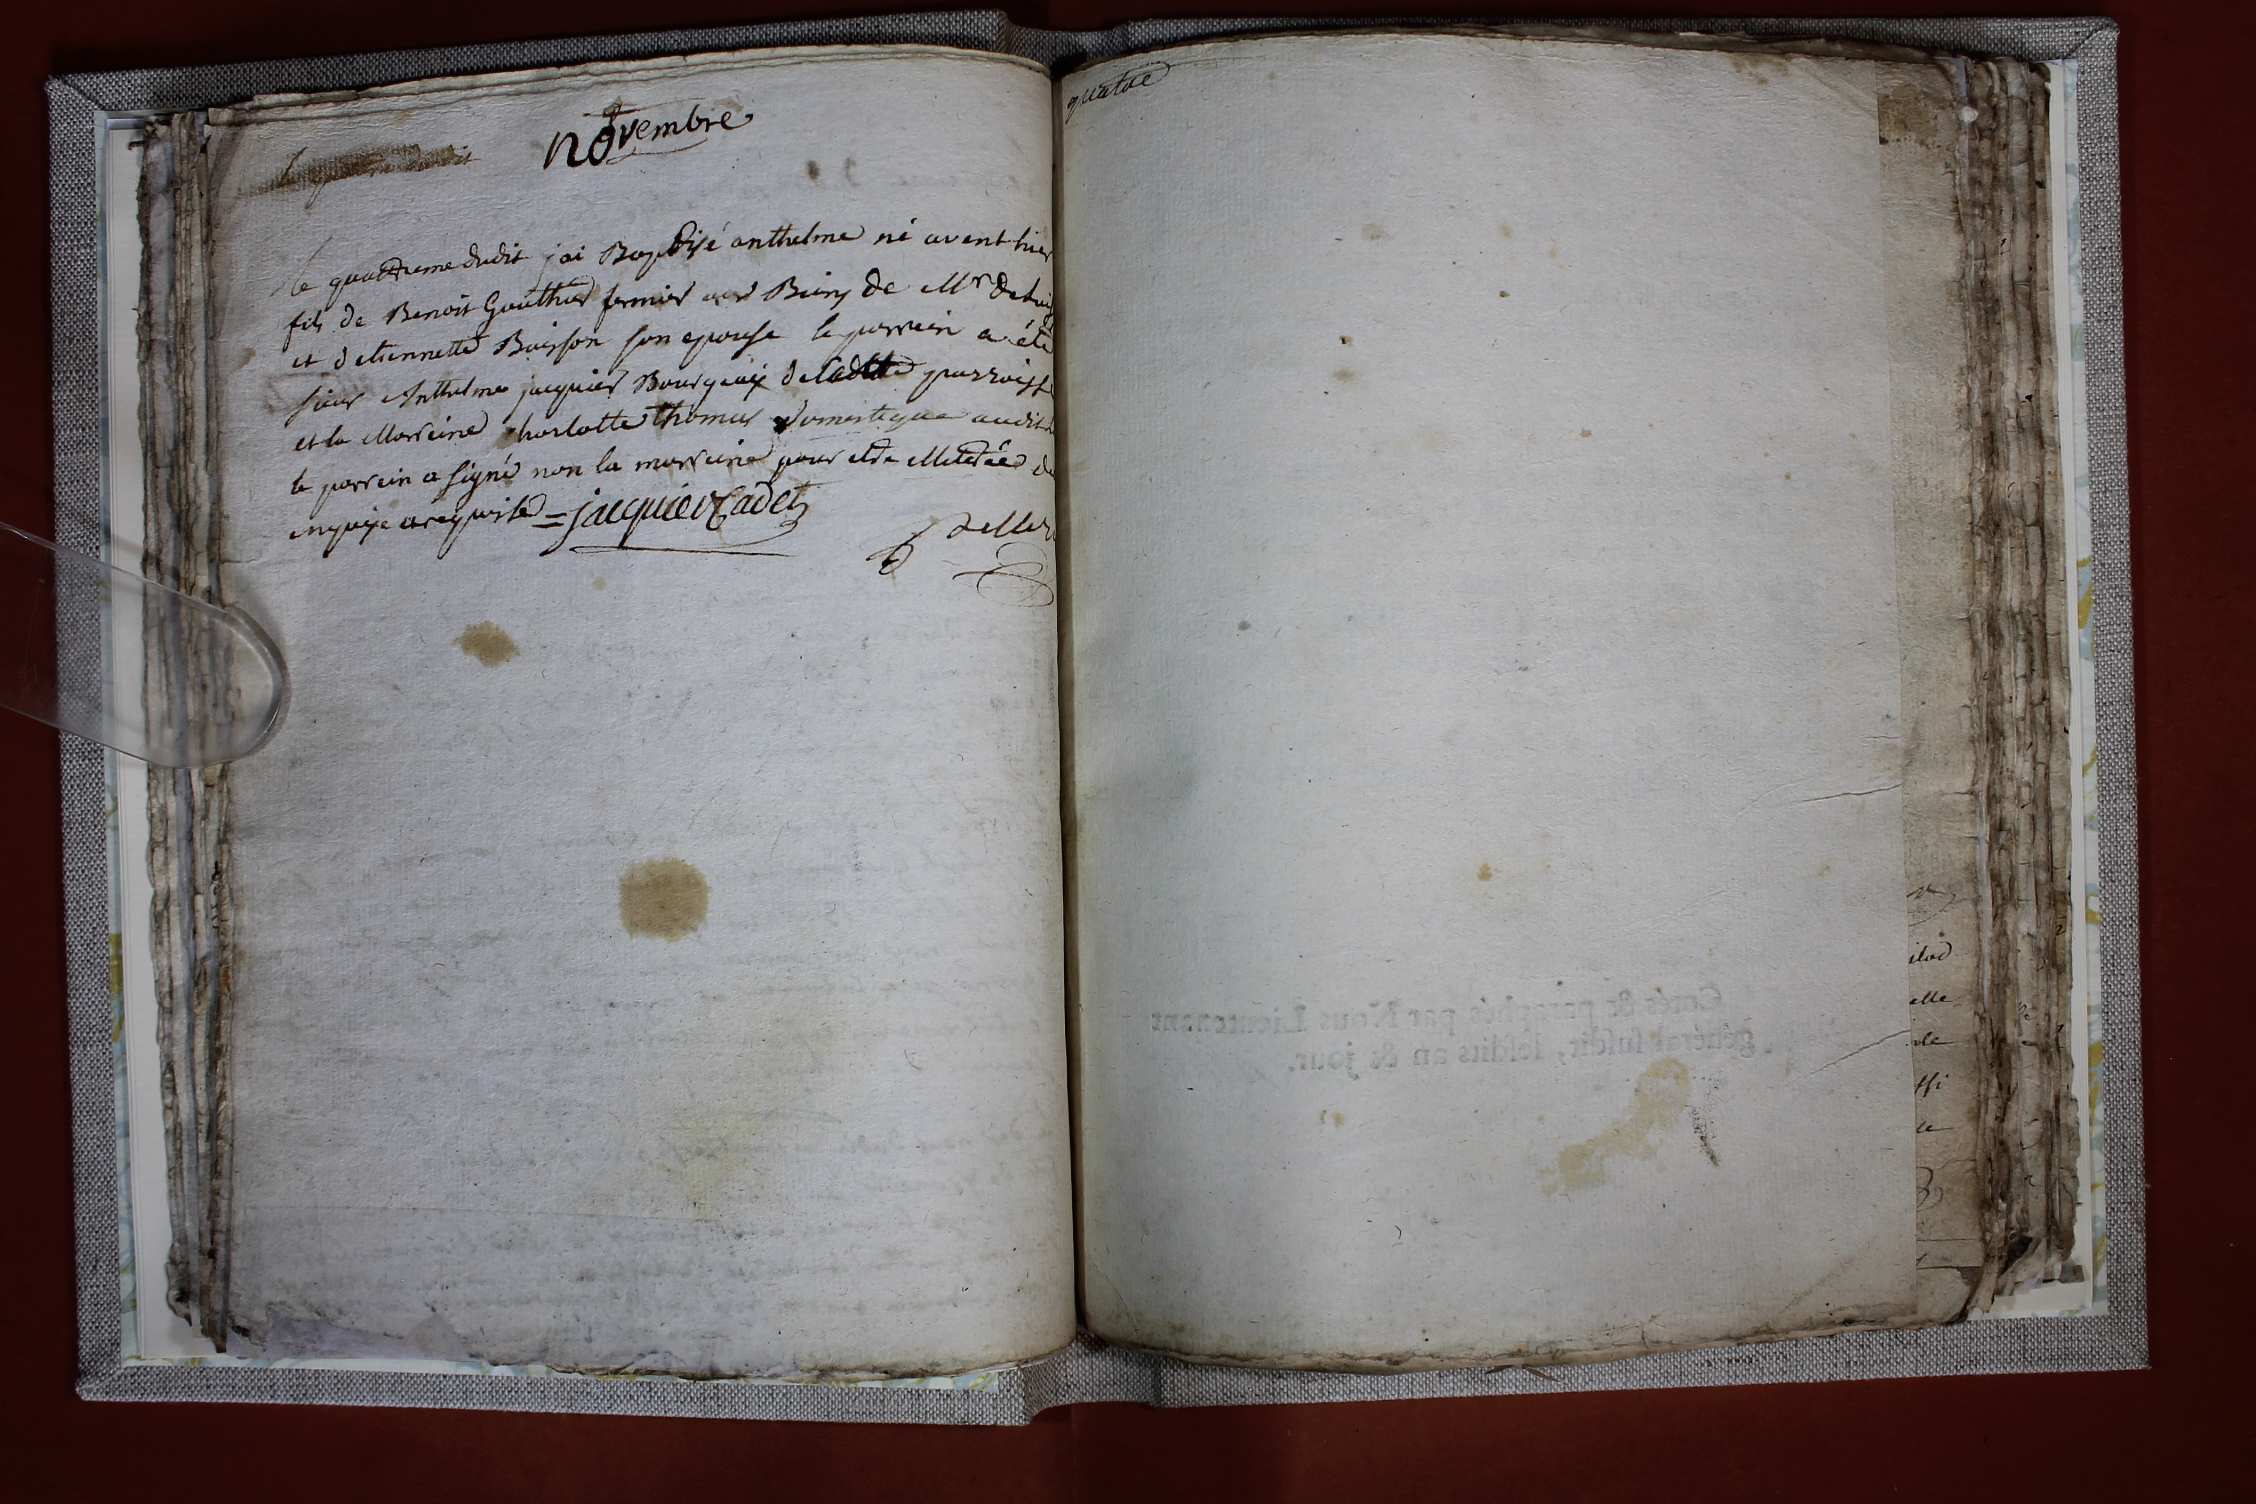 novembre
le quatrieme dudit j'ai Baptisé anthelme né avent hier
fils de Benoit Gauthier fermier aux Biens de Mr
et d'etiennette Buisson son epouse le parrein a été
sieur Anthelme jacquier Bourgeoix de ladite parroisse
et la Marreine charlotte thomas domestique audit
le parrein a signé non la marreine pour etre illiterée de
enquise et requise = jacquier Cadet
quatre
Cotés & paraphés par Nous Lieutenant
général susdit, lesdits an & jour.